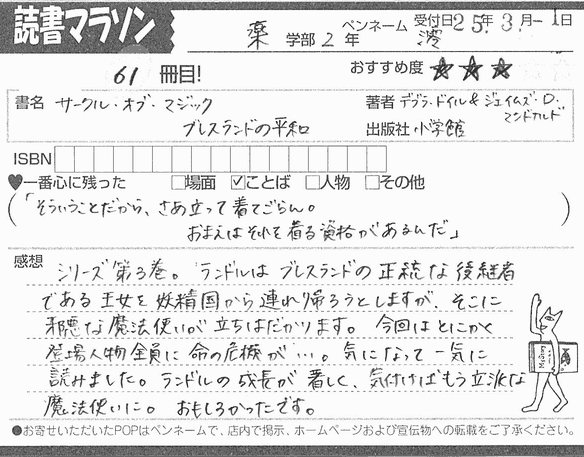 読書マラソン
薬 学部 2 年 ペンネーム 澪 受付日 25年 3月 1日
61 冊目! おすすめ度 ★★★
書名 サークル・オブ・マジック
ブレスランドの平和
著者 デブラ・ドイル & ジェイムズ・D・
マクドナルド
出版社 小学館
ISBN
♥一番心に残った □場面 ☑ことば □人物 □その他
(「そういうことだから、さぁ立って着てごらん。
おまえはそれを着る資格があるんだ」)
感想 シリーズ第3巻。ランドルはブレスランドの正統な後継者
である王女を妖精国から連れ帰ろうとしますが、そこに
邪悪な魔法使いが立ちはだかります。今回はとにかく
登場人物全員に命の危機が…。気になって一気に
読みました。ランドルの成長が著しく、気付けばもう立派な
魔法使いに。おもしろかったです。
●お寄せいただいたPOPはペンネームで、店内で掲示、ホームページおよび宣伝物への転載をご了承ください。